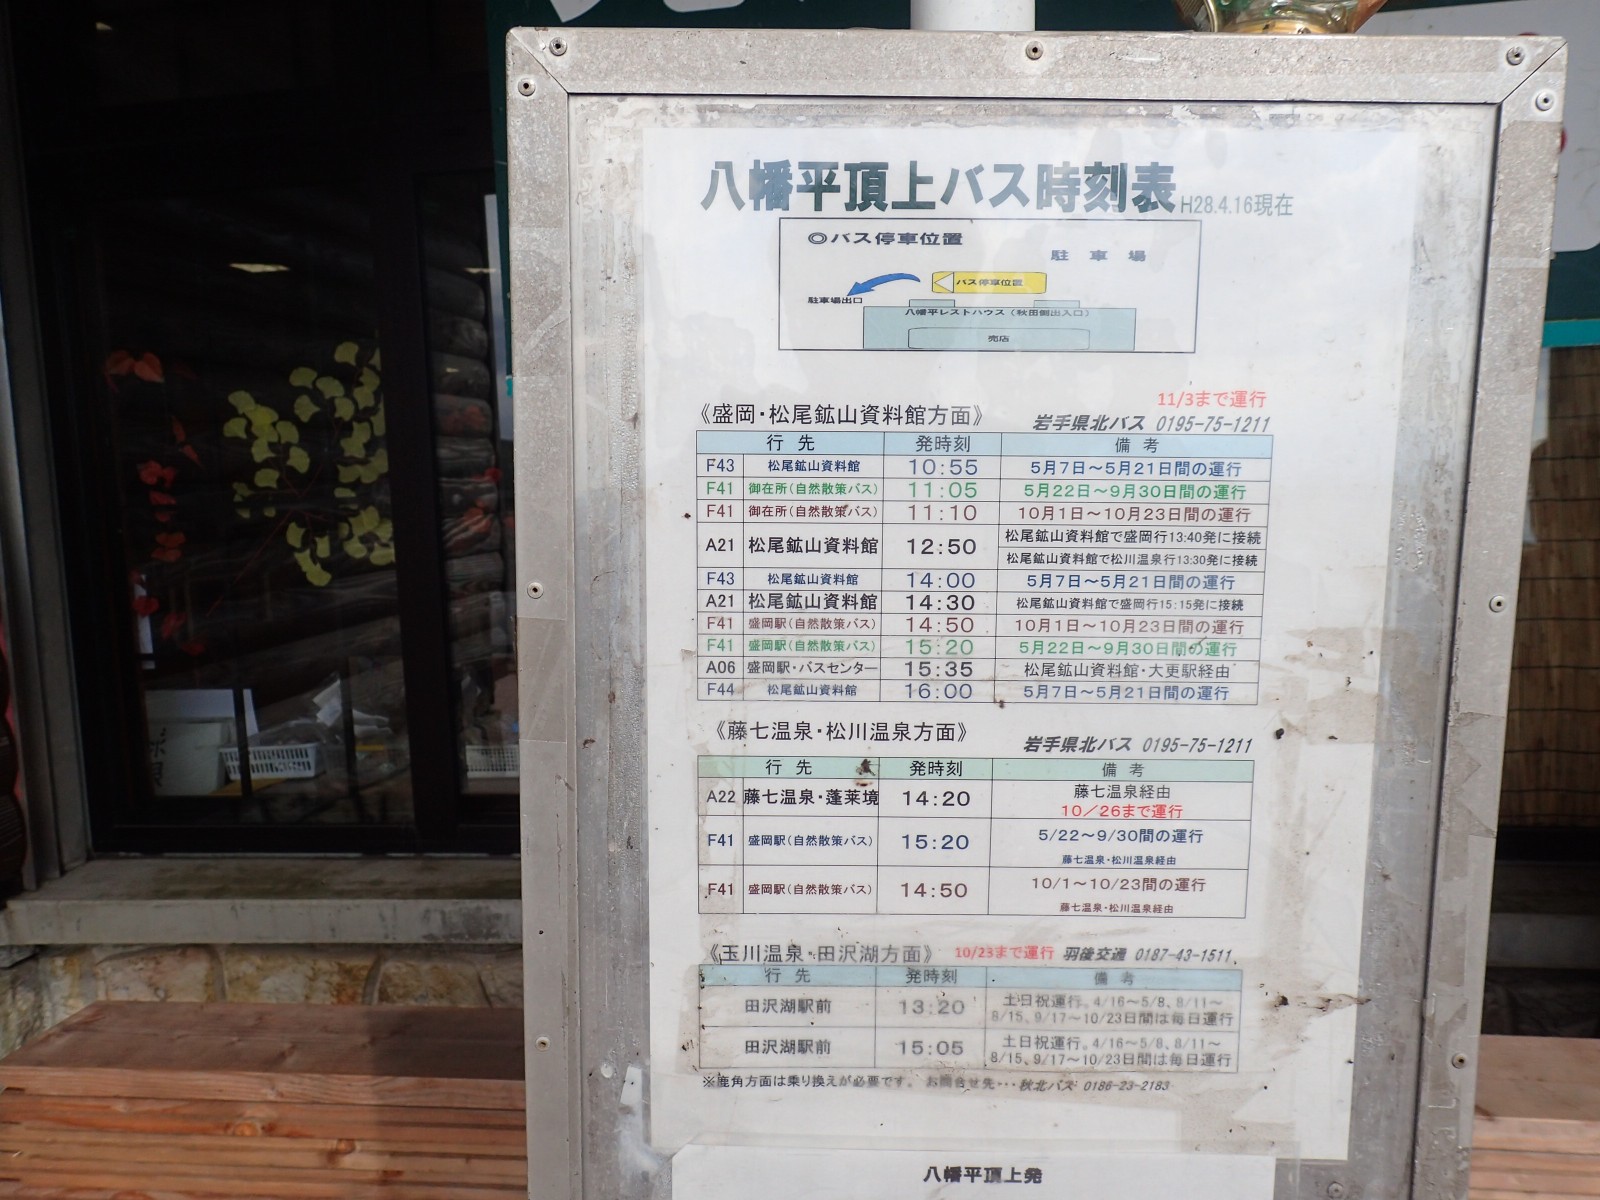 八幡平頂上バス時刻表 H28.4.16現在
◎バス停車位置
駐 車 場
バス停車位置
駐車場出口
八幡平レストハウス(秋田側出入口)
売店
11/3まで運行
《盛岡・松尾鉱山資料館方面》 岩手県北バス 0195-75-1211
行 先 発時刻 備 考
F43 松尾鉱山資料館 10:55 5月7日~5月21日間の運行
F41 御在所(自然散策バス) 11:05 5月22日~9月30日間の運行
F41 御在所(自然散策バス) 11:10 10月1日~10月23日間の運行
A21 松尾鉱山資料館 12:50 松尾鉱山資料館で盛岡行13:40発に接続
松尾鉱山資料館で松川温泉行13:30発に接続
F43 松尾鉱山資料館 14:00 5月7日~5月21日間の運行
A21 松尾鉱山資料館 14:30 松尾鉱山資料館で盛岡行15:15発に接続
F41 盛岡駅(自然散策バス) 14:50 10月1日~10月23日間の運行
F41 盛岡駅(自然散策バス) 15:20 5月22日~9月30日間の運行
A06 盛岡駅・バスセンター 15:35 松尾鉱山資料館・大更駅経由
F44 松尾鉱山資料館 16:00 5月7日~5月21日間の運行
《藤七温泉・松川温泉方面》 岩手県北バス 0195-75-1211
行 先 発時刻 備 考
A22 藤七温泉・蓬莱境 14:20 藤七温泉経由
10/26まで運行
F41 盛岡駅(自然散策バス) 15:20 5/22~9/30間の運行
藤七温泉・松川温泉経由
F41 盛岡駅(自然散策バス) 14:50 10/1~10/23間の運行
藤七温泉・松川温泉経由
《玉川温泉・田沢湖方面》 10/23まで運行 羽後交通 0187-43-1511
行 先 発時刻 備 考
田沢湖駅前 13:20 土日祝運行。4/16~5/8、8/11~
8/15、9/17~10/23日間は毎日運行
田沢湖駅前 15:05 土日祝運行。4/16~5/8、8/11~
8/15、9/17~10/23日間は毎日運行
※鹿角方面は乗り換えが必要です。 お問合せ先・・・秋北バス 0186-23-2183
八幡平頂上発